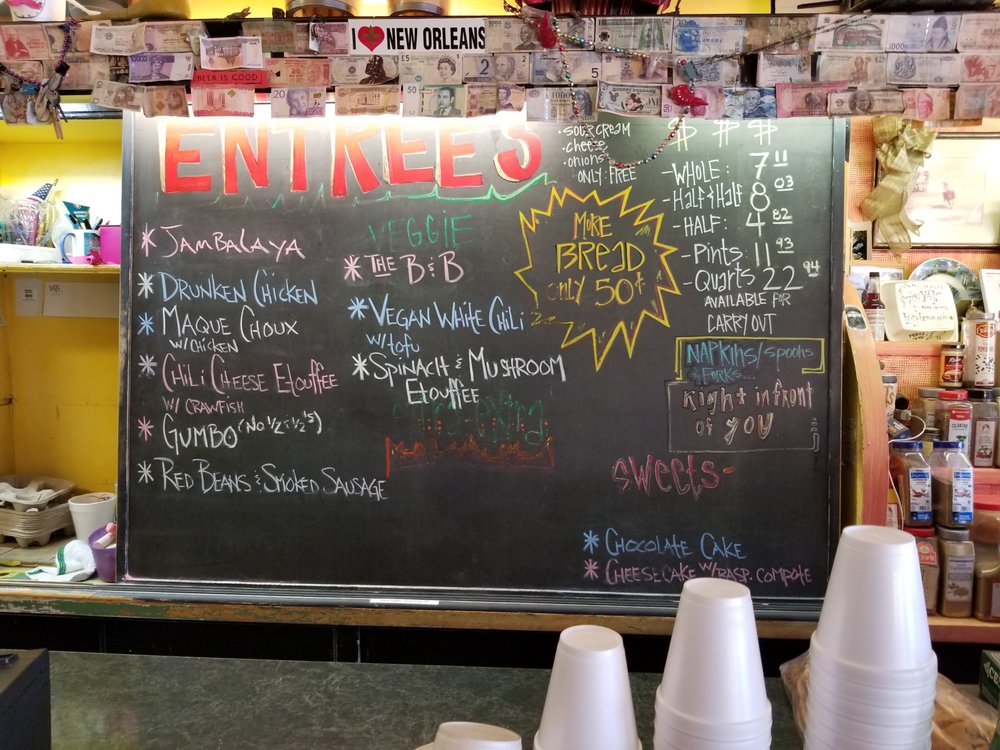 I ♥ NEW ORLEANS
BEER IS GOOD
ENTREES
* JAMBALAYA
* DRUNKEN CHICKEN
* MAQUE CHOUX
W/CHICKEN
* CHILI CHEESE ETOUFFEE
W/ CRAWFISH
* GUMBO (NO ½ & ½'S)
* RED BEANS & SMOKED SAUSAGE
VEGGIE
* THE B & B
* VEGAN WHITE CHILI
W/TOFU
* SPINACH & MUSHROOM
ETOUFFEE
• SOUR CREAM
• CHEESE
• ONIONS
ONLY: FREE
MORE
BREAD
ONLY 50¢
$ $ $
-WHOLE: 7 11
-HALF & HALF 8 03
-HALF: 4 82
-PINTS: 11 93
-QUARTS 22 94
AVAILABLE FOR
CARRY OUT
NAPKINS/SPOONS
& FORKS...
Right in front
of you
SWEETS-
* CHOCOLATE CAKE
* CHEESECAKE W/RASP. COMPOTE